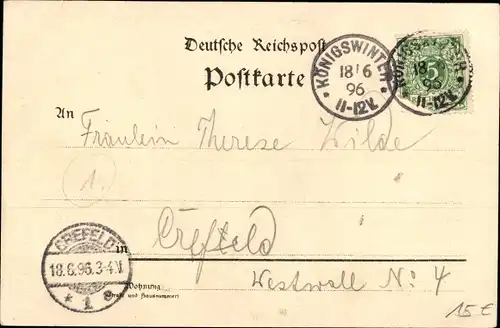 Deutsche Reichspost
Postkarte
KÖNIGSWINTER
18 6
96
* 11-12V. *
18
5
96
* 11-12V. *
An
Fräulein Therese Wilde
1.
CREFELD
18.6.96.3-4.N
* 1
in Crefeld
Wohnung
(Straße und Hausnummer)
Westwall No: 4
15 €